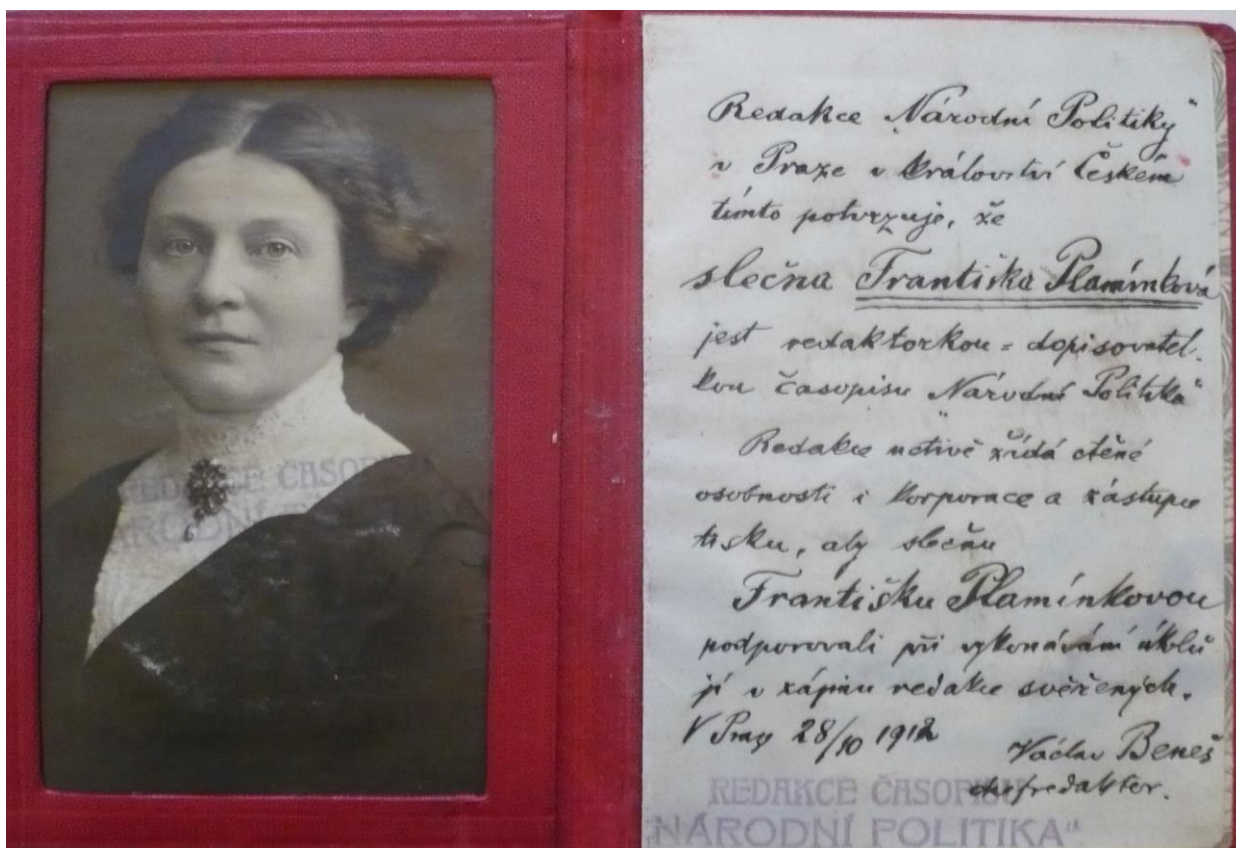 REDAKCE ČASOPISU
NÁRODNÍ
Redakce „Národní Politiky"
v Praze v království Českém
tímto potvrzuje, že
slečna Františka Plamínková
jest redaktorkou = dopisovatel-
kou časopisu „Národní Politika"
Redakce uctivě žádá ctěné
osobnosti i korporace a zástupce
tisku, aby slečnu
Františku Plamínkovou
podporovali při vykonávání úkolů
jí v zájmu redakce svěřených.
V Praze 28/10 1912
Václav Beneš
chefredakter.
REDAKCE ČASOPISU
„NÁRODNÍ POLITIKA"